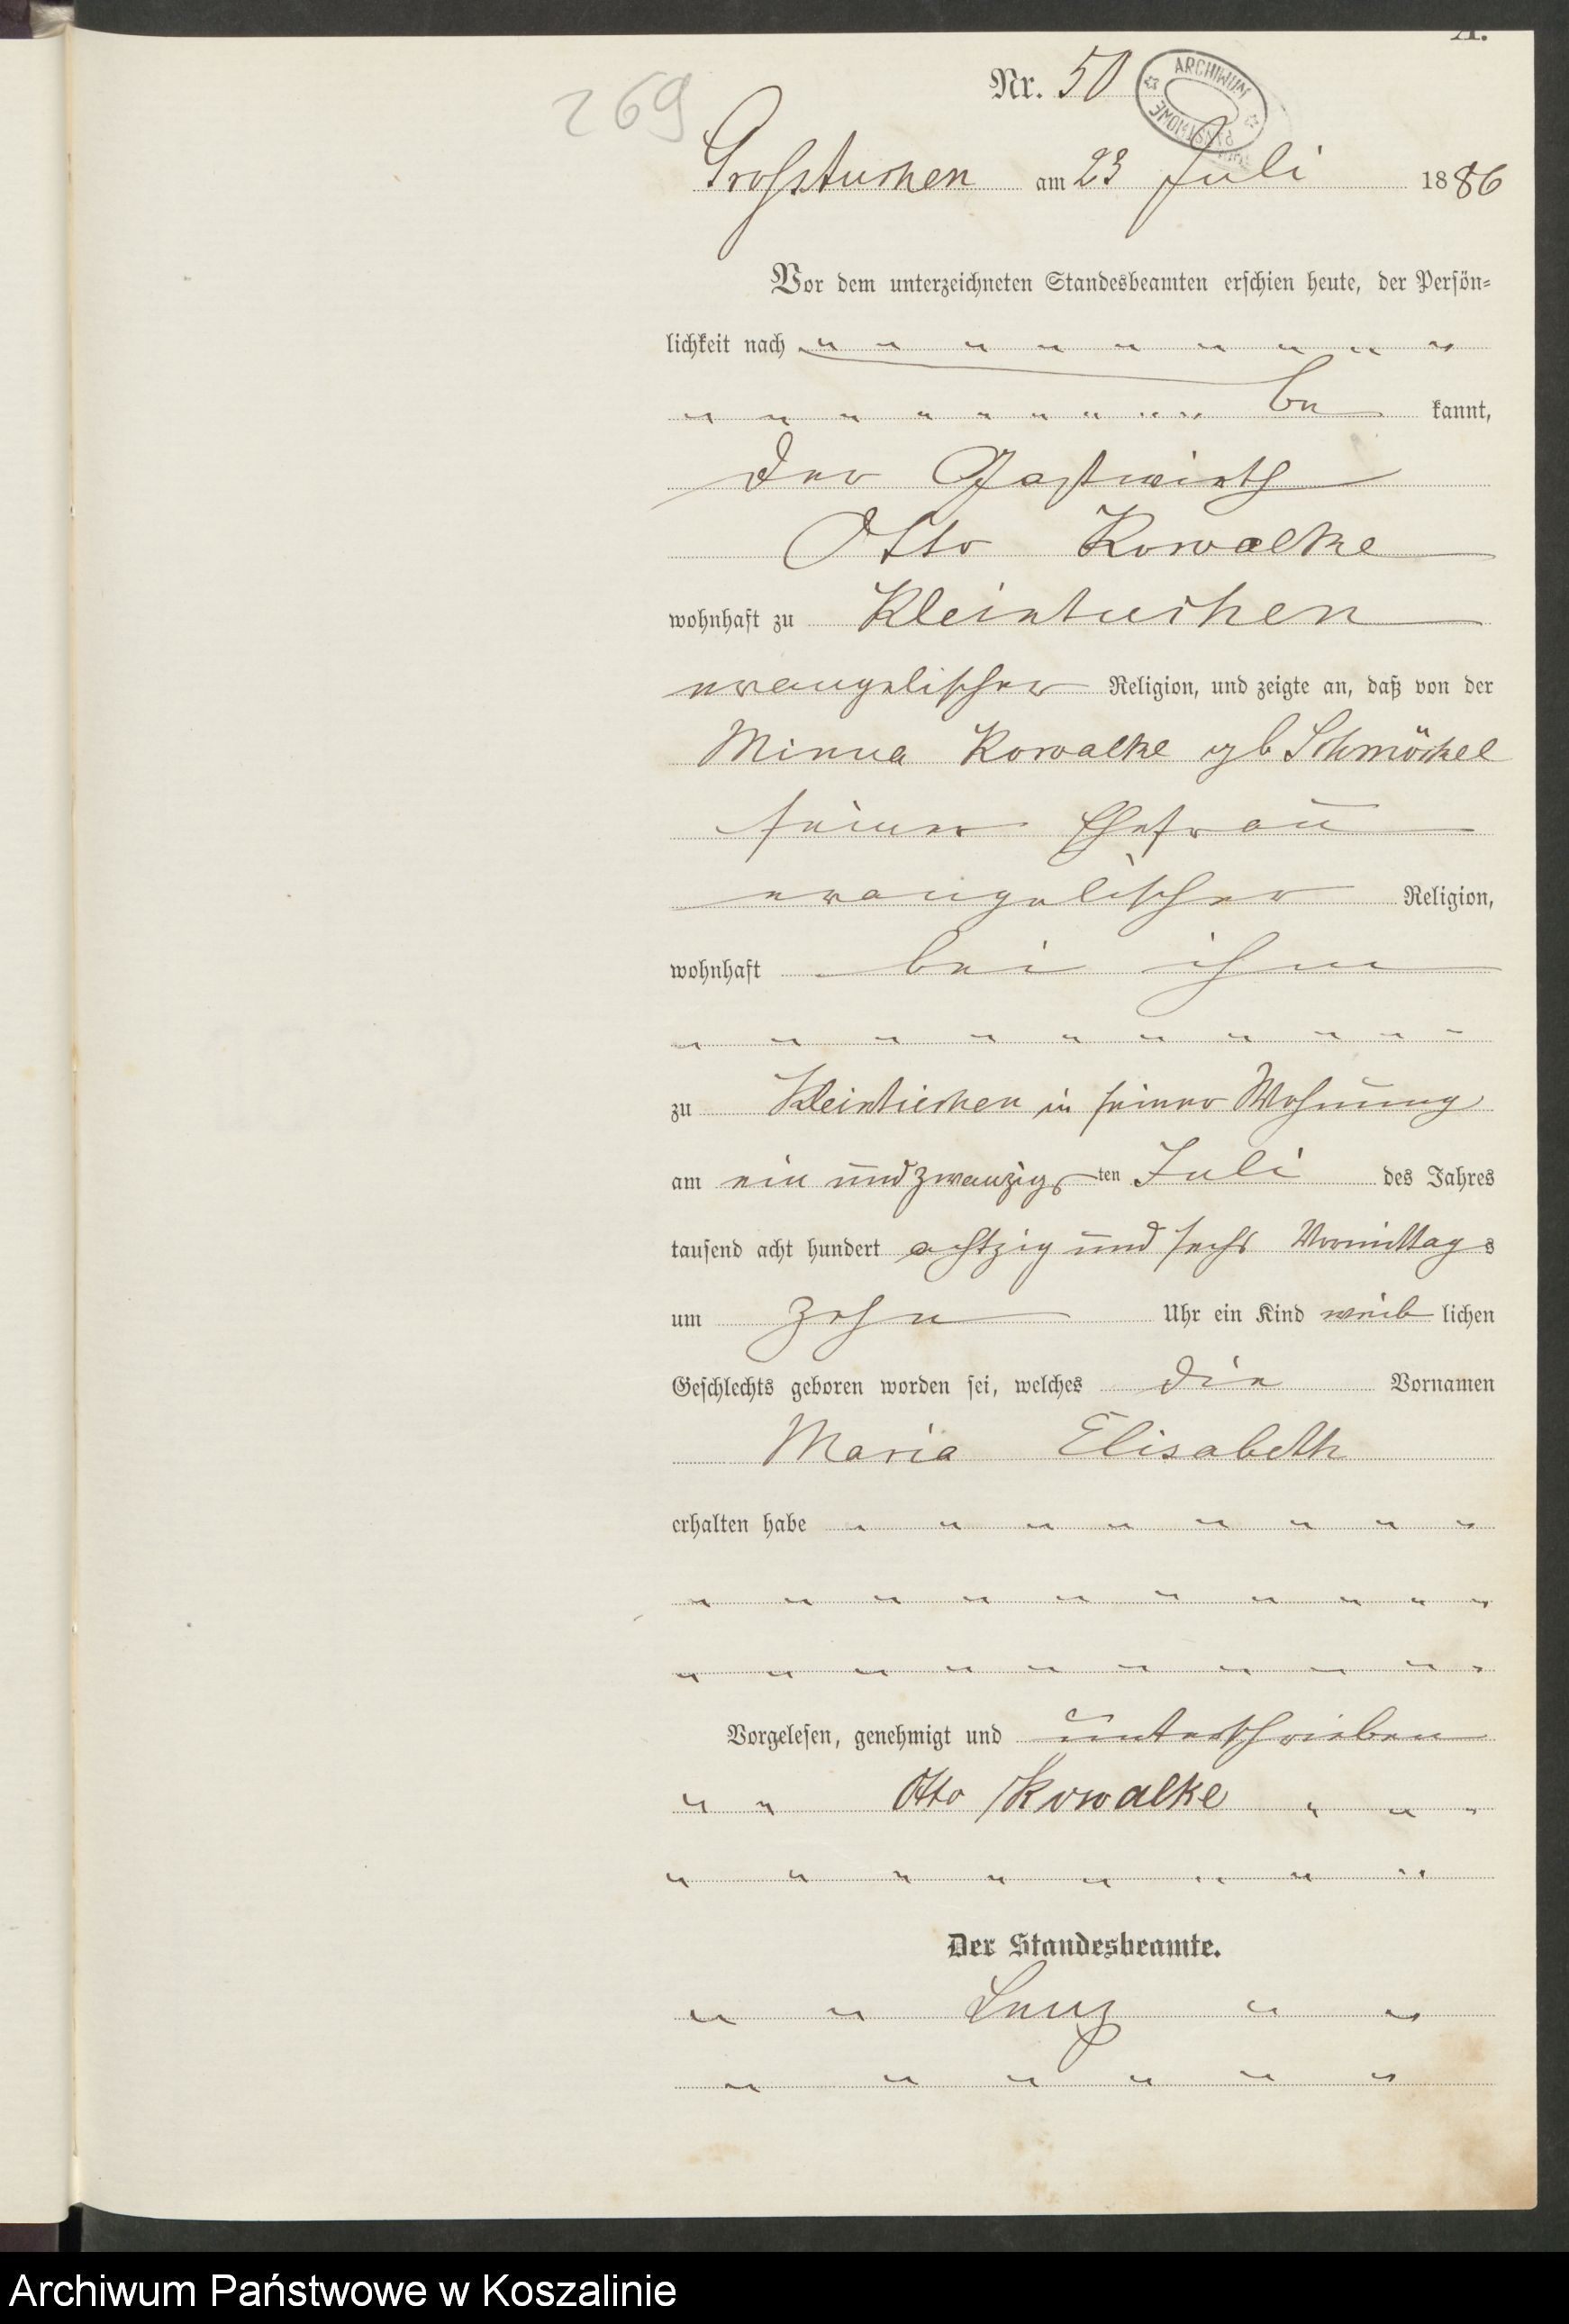 A.
269
Nr. 50
ARCHIWUM PAŃSTWOWE
Grosstuchen am 23 Juli 1886
Vor dem unterzeichneten Standesbeamten erschien heute, der Persön=
lichkeit nach " " " " " " " " "
" " " " " " " " " " be kannt,
der Gastwirth
Otto Kowalke
wohnhaft zu Kleintuchen
evangelischer Religion, und zeigte an, daß von der
Minna Kowalke gb Schmöckel
seiner Ehefrau
evangelischer Religion,
wohnhaft bei ihm
" " " " " " " " " "
zu Kleintuchen in seiner Wohnung
am ein und zwanzigsten Juli des Jahres
tausend acht hundert achtzig und sechs Vormittags
um zehn Uhr ein Kind weiblichen
Geschlechts geboren worden sei, welches die Vornamen
Maria Elisabeth
erhalten habe " " " " " " " "
" " " " " " " " " "
" " " " " " " " " "
Vorgelesen, genehmigt und unterschrieben
" " Otto Kowalke " " "
" " " " " " " "
Der Standesbeamte.
" " Lenz " "
" " " " " "
Archiwum Państwowe w Koszalinie